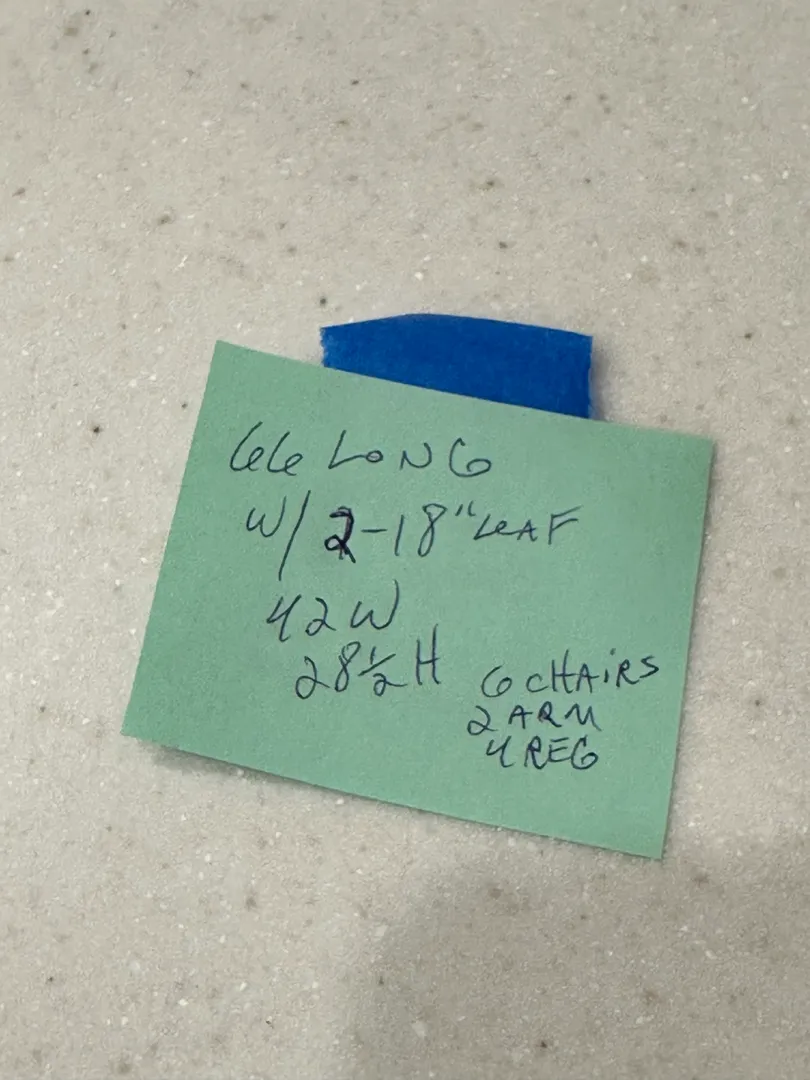 66 LONG
W/ 2-18" LEAF
42W
28½ H
6 CHAIRS
2 ARM
4 REG